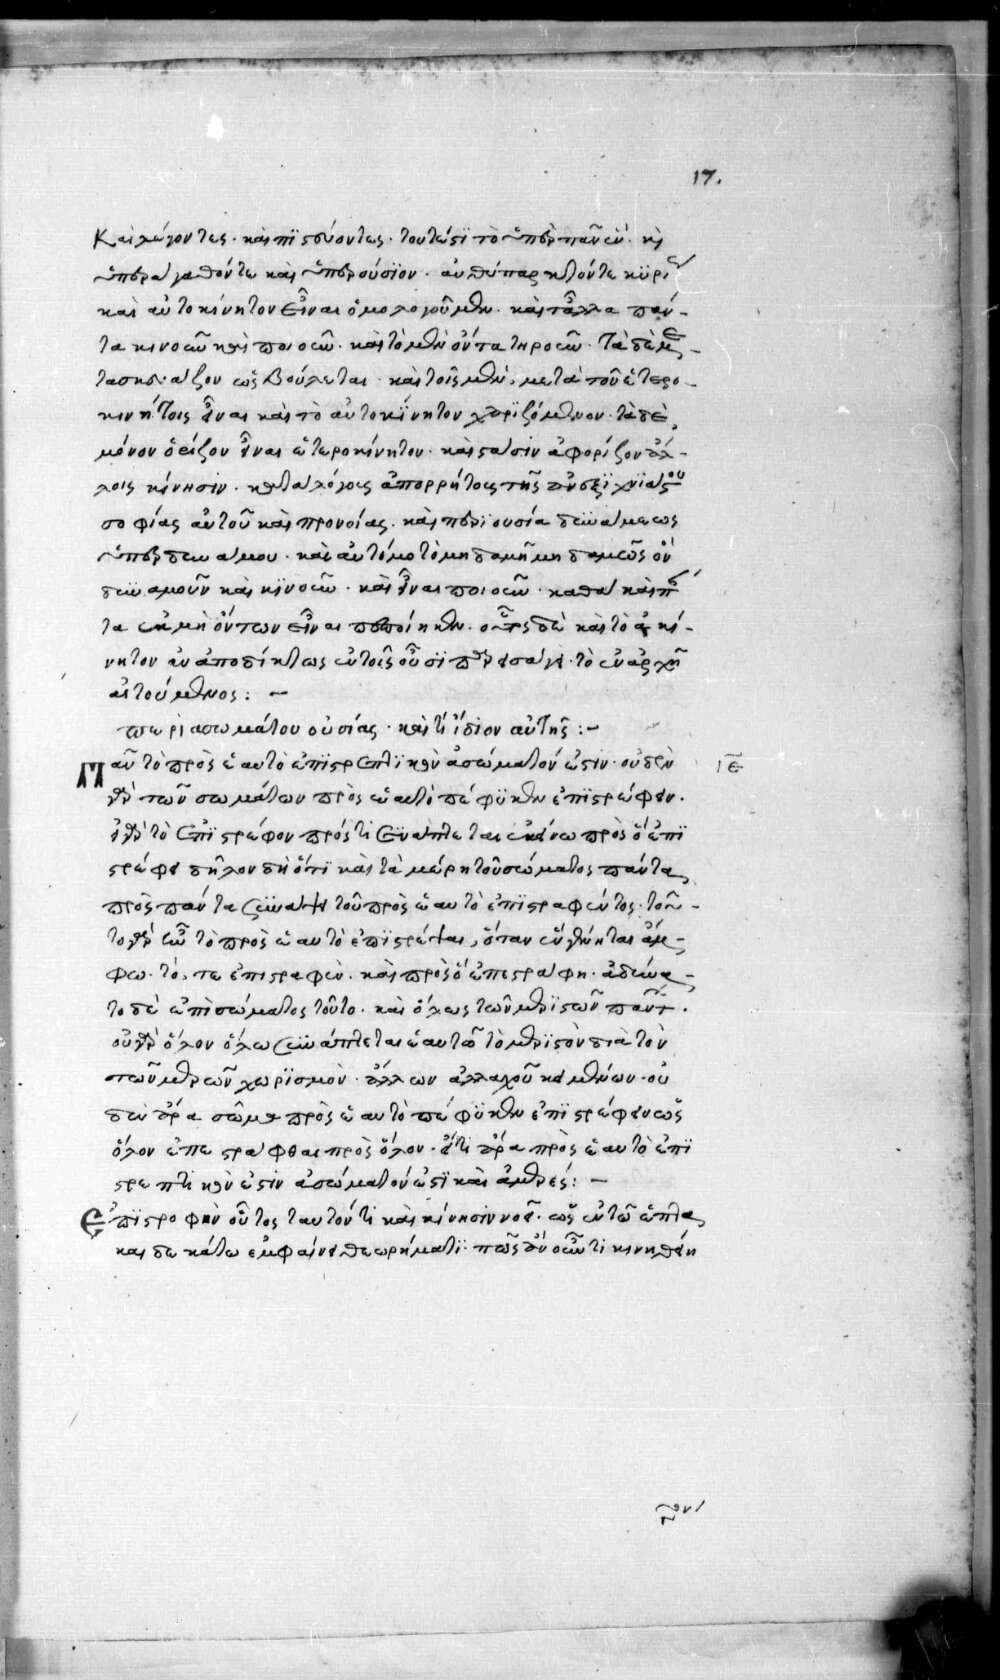 17.
καὶ λέγοντες. καὶ πιστεύοντες. τουτέστι τὸ ὑπὲρ πᾶν ἓν. καὶ
ὑπεράγαθόν τε καὶ ὑπερούσιον. ἀνθύπαρκτόν τε κυρί
καὶ αὐτοκίνητον εἶναι ὁμολογοῦμεν. καὶ τἄλλα πάν-
τα κινοῦν καὶ ποιοῦν. καὶ τὸ μὲν
ὡς βούλεται. καὶ τοῖς μὲν, μετὰ τοῦ ἑτερο-
κινήτοις εἶναι καὶ τὸ αὐτοκίνητον χαριζόμενον. τὰ δὲ
μόνον εἶναι ἑτεροκίνητον. καὶ στάσιν ἀφορίζον ἄλ-
λοις κίνησιν. κατὰ λόγους ἀπορρήτους τῆς ἀνεξιχνιάστου
σοφίας αὐτοῦ καὶ προνοίας. καὶ περιουσία δυνάμεως
ὑπερδυνάμου. καὶ αὐτό μὴ δαμῆ μηδαμῶς ὂν
δυναμοῦν καὶ κινοῦν. καὶ εἶναι ποιοῦν. καθὰ καὶ πάν
τα ἐκ μὴ ὄντων εἶναι πεποίηκεν. οὗτος δὲ καὶ τὸ ἀκί-
νητον ἀναποδείκτως ἐν τοῖς οὖσι παρεισάγει. τὸ ἐν ἀρχῇ
αἰτούμενος: –
περὶ ἀσωμάτου οὐσίας. καὶ τί ἴδιον αὐτῆς: –
Πᾶν τὸ πρὸς ἑαυτὸ ἐπιστρεπτικὸν ἀσώματόν ἐστιν. οὐδὲν ιε
γὰρ τῶν σωμάτων πρὸς ἑαυτὸ πέφυκεν ἐπιστρέφειν.
εἰ γὰρ τὸ ἐπιστρέφον πρός τι συνάπτεται ἐκείνω πρὸς ὃ ἐπι
στρέφει δῆλον δὴ ὅτι καὶ τὰ μέρη τοῦ σώματος πάντα
πρὸς πάντα συνάψει τοῦ πρὸς ἑαυτὸ ἐπιστραφέντος. τοῦ-
το γὰρ ἦν τὸ πρὸς ἑαυτὸ ἐπιστρέψαι, ὅταν ἓν γένηται ἄμ-
φω. τό, τε ἐπιστραφὲν. καὶ πρὸς ὃ ἐπεστράφη. ἀδύνα-
το δὲ ἐπὶ σώματος τοῦτο. καὶ ὅλως τῶν μεριστῶν πάντ.
οὐ γὰρ ὅλον ὅλω συνάπτεται ἑαυτῶ τὸ μεριστὸν διὰ τὸν
τῶν μερῶν χωρισμὸν. ἄλλων ἀλλαχοῦ κειμένων. οὐ
δὲν ἄρα σῶμα πρὸς ἑαυτὸ πέφυκεν ἐπιστρέφειν ὡς
ὅλον ἐπεστράφθαι πρὸς ὅλον. εἴ τι ἄρα πρὸς ἑαυτὸ ἐπι
στρεπτικὸν ἐστιν ἀσώματόν ἐστι καὶ ἀμερές: –
Ἐπιστροφὴν οὗτος ταυτόν τι καὶ κίνησιν νοεῖ. ὡς ἐν τῶ ἑπτα
καιδεκάτω ἐμφαίνει θεωρήματι. πῶς ἂν οὖν τι κινηθείη